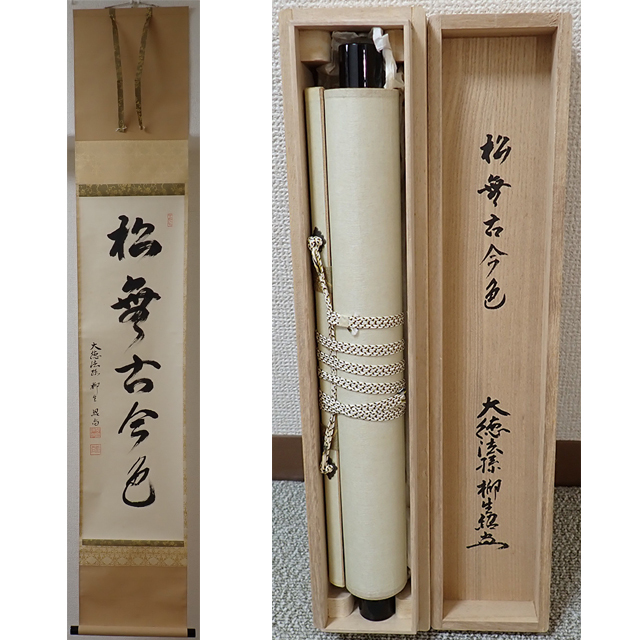 松無古今色
大徳法孫 柳生紹尚
松無古今色
大徳法孫 柳生紹尚